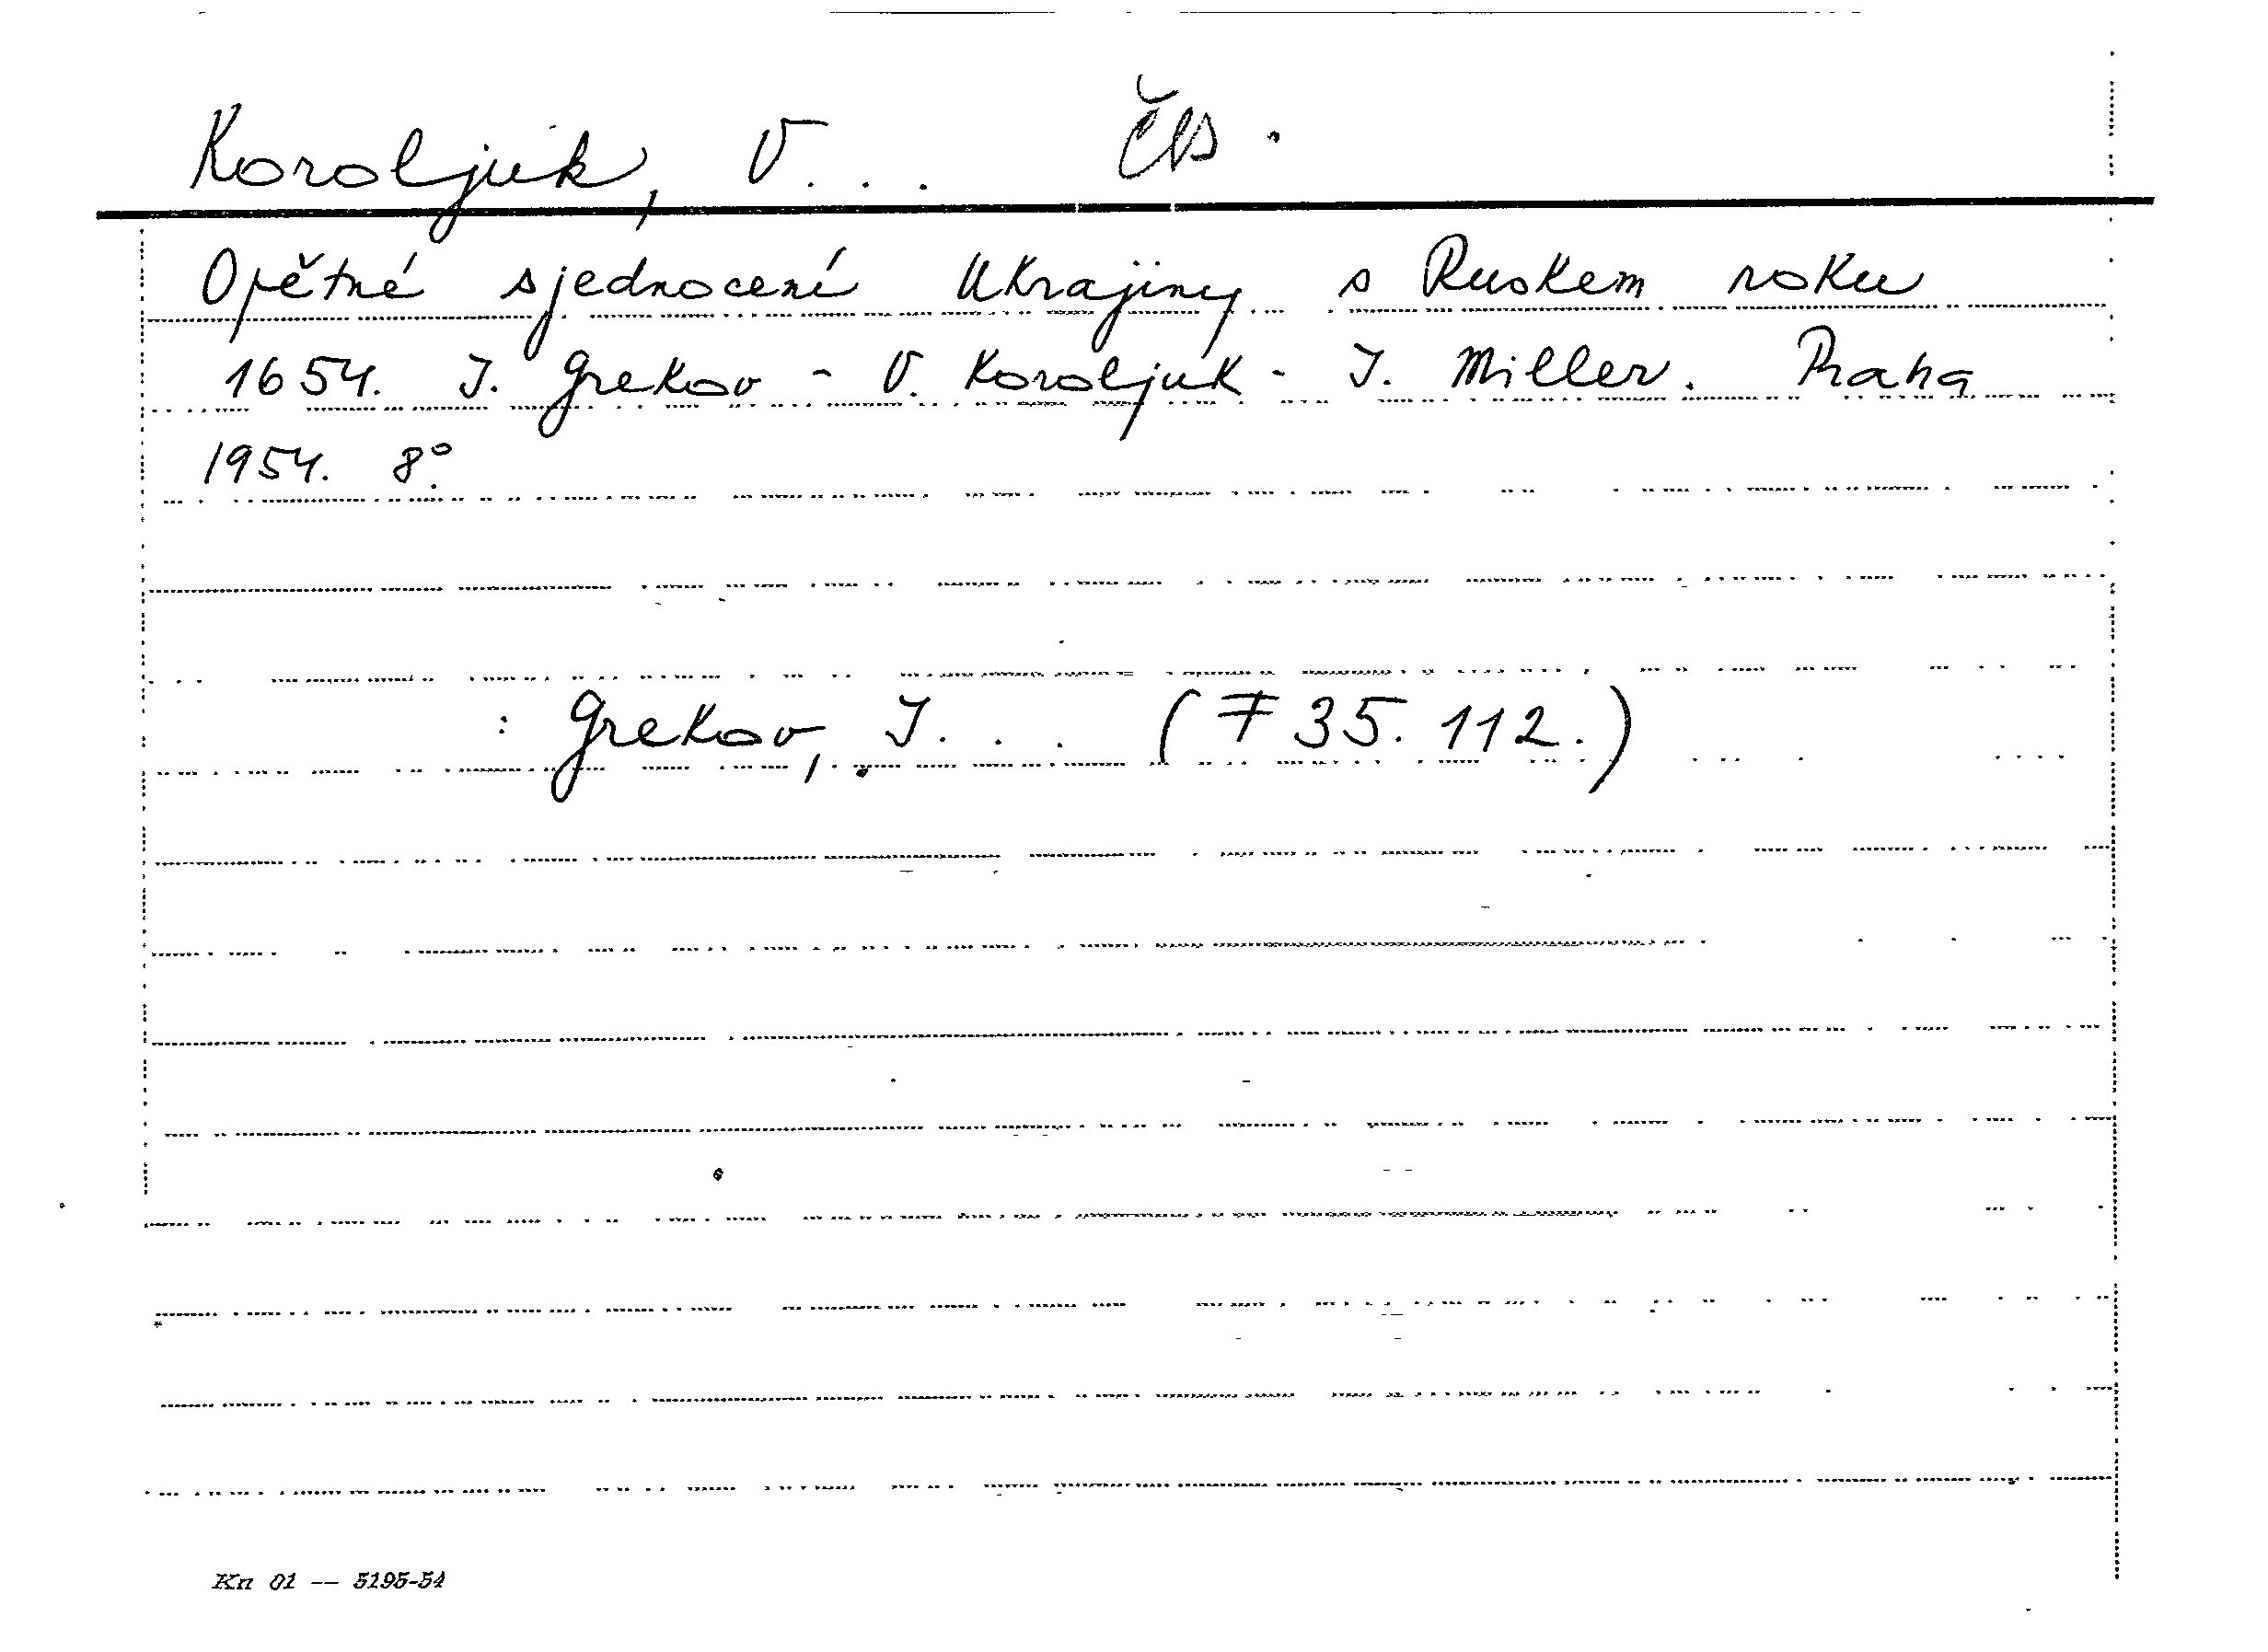 Koroljuk, V... Čs.
Opětné sjednocení Ukrajiny s Ruskem roku
1654. I. Grekov - V. Koroljuk - I. Miller. Praha
1954. 8°.
: Grekov, I... (F 35.112.)
Kn 01 -- 5195-54